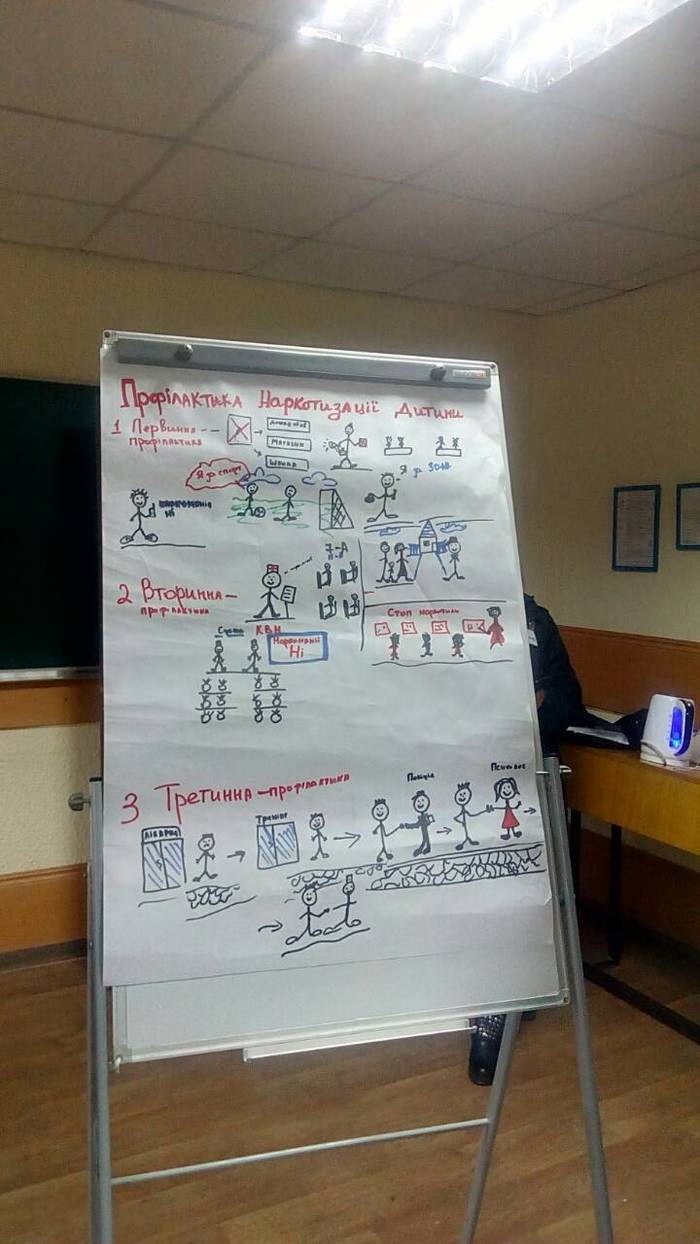 Профілактика Наркотизації Дитини
1 Первинна --
профілактика
Магазин
Школа
Я за спорт
Я за ЗОЖ
7-А
2 Вторинна -
профілактика
Сцена КВН
Наркоманії
Ні
Стоп наркотик
3 Третинна - профілактика
Лікарня
Тренінг
Поліція
Психолог